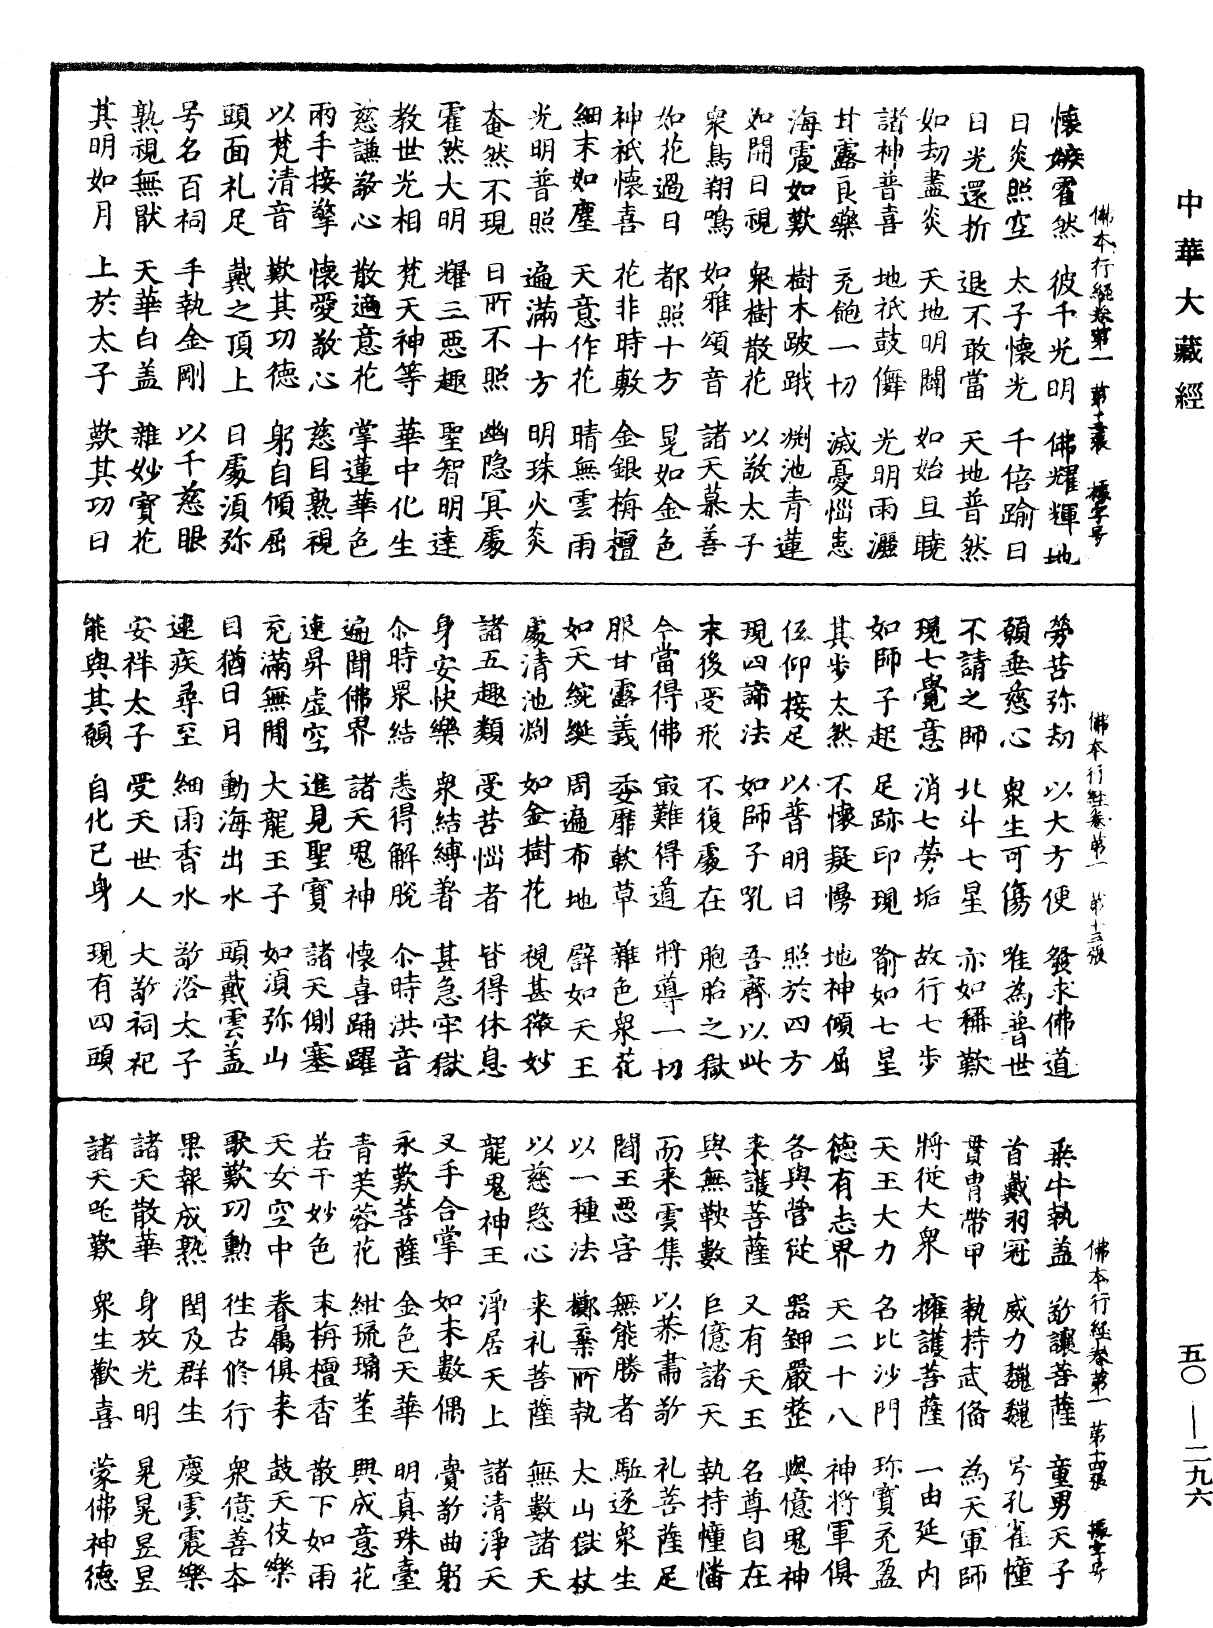 中華大藏經
五〇——二九六
佛本行經卷第一 第十二張 振字号
懷嫉霍然 彼千光明 佛耀輝地
日炎照空 太子懷光 千倍踰日
日光還折 退不敢當 天地普然
如劫盡炎 天地明闢 如始旦曉
諸神普喜 地祇鼓儛 光明雨灑
甘露良樂 充飽一切 滅憂惱恚
海震如歎 樹木跛踱 渕池青蓮
如開日視 衆樹散花 以敬太子
衆鳥翔鳴 如雅頌音 諸天慕善
如花過日 都照十方 晃如金色
神祇懷喜 花非時敷 金銀栴檀
細末如塵 天意作花 晴無雲雨
光明普照 遍滿十方 明珠火炎
奄然不現 日所不照 幽隐冥處
霍然大明 耀三惡趣 聖智明達
教世光相 梵天神等 華中化生
慈謙敬心 散適意花 掌蓮華色
兩手接擎 懷愛敬心 慈目熟視
以梵清音 歎其功德 躬自傾屈
頭面礼足 戴之頂上 日處湏弥
号名百祠 手執金剛 以千慈眼
熟視無猒 天華白盖 雜妙寶花
其明如月 上於太子 歎其功日
佛本行經卷第一 第十三張
勞苦弥劫 以大方便 發求佛道
願垂慈心 衆生可傷 唯為普世
不請之師 北斗七星 亦如稱歎
現七覺意 消七勞垢 故行七步
如師子起 足跡印現 喻如七星
其步太然 不懷疑慢 地神傾屈
低仰接足 以普明日 照於四方
現四諦法 如師子吼 吾齊以此
末後受形 不復處在 胞胎之獄
今當得佛 寂難得道 將導一切
服甘露義 委靡軟草 雜色衆花
如天綩綖 周遍布地 譬如天王
處清池渕 如金樹花 視甚微妙
諸五趣類 受苦惱者 皆得休息
身安快樂 衆結縛著 甚急牢獄
尒時眾結 悉得解脫 尒時洪音
遍聞佛界 諸天鬼神 懷喜踊躍
速昇虛空 進見聖寶 諸天側塞
充滿無閒 大龍王子 如湏弥山
目猶日月 動海出水 頭戴雲盖
速疾尋至 細雨香水 敬浴太子
安祥太子 受天世人 大敬祠祀
能與其願 自化己身 現有四頭
佛本行經卷第一 第十四張 振字号
乘牛執盖 敬讓菩薩 童男天子
首戴羽冠 威力巍巍 号孔雀幢
貫冑帶甲 執持武俻 為天軍師
將從大衆 擁護菩薩 一由延內
天王大力 名比沙門 珎寶充盈
德有志界 天二十八 神將軍俱
各與營從 器鉀嚴整 與億鬼神
来護菩薩 又有天王 名尊自在
與無鞅數 巨億諸天 執持幢幡
而来雲集 以恭肅敬 礼菩薩足
閻王惡害 無能勝者 駈逐衆生
以一種法 擲棄所執 太山獄杖
以慈愍心 来礼菩薩 無數諸天
龍鬼神王 淨居天上 諸清淨天
叉手合掌 如末數偶 賷敬曲躬
永歎菩薩 金色天華 明真珠臺
青芙蓉花 紺琉璃莖 興成意花
若干妙色 末栴檀香 散下如雨
天女空中 眷属俱来 鼓天伎樂
歌歎功勳 徃古修行 衆億善夲
果報成熟 閏及群生 慶雲震樂
諸天散華 身放光明 晃晃昱昱
諸天咤歎 衆生歡喜 蒙佛神德